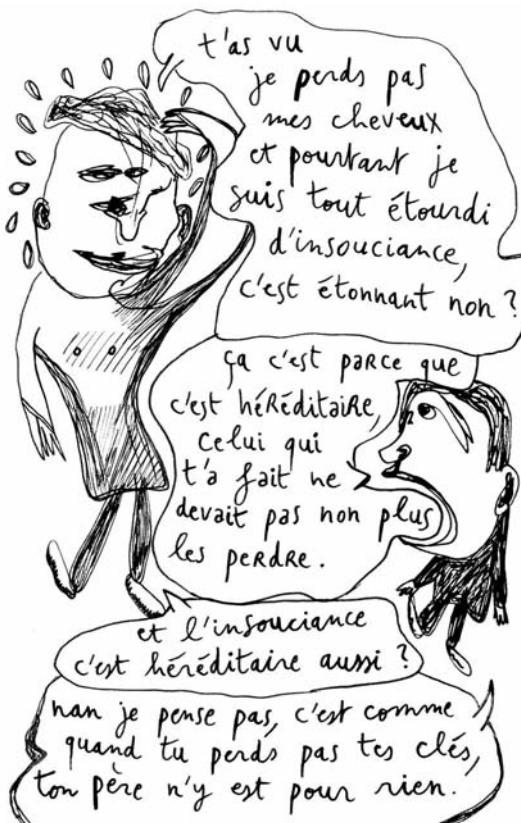 t'as vu
je perds pas
mes cheveux
et pourtant je
suis tout étourdi
d'insouciance,
c'est étonnant non ?
ça c'est parce que
c'est héréditaire,
celui qui
t'a fait ne
devait pas non plus
les perdre.
et l'insouciance
c'est héréditaire aussi ?
nan je pense pas, c'est comme
quand tu perds pas tes clés,
ton père n'y est pour rien.